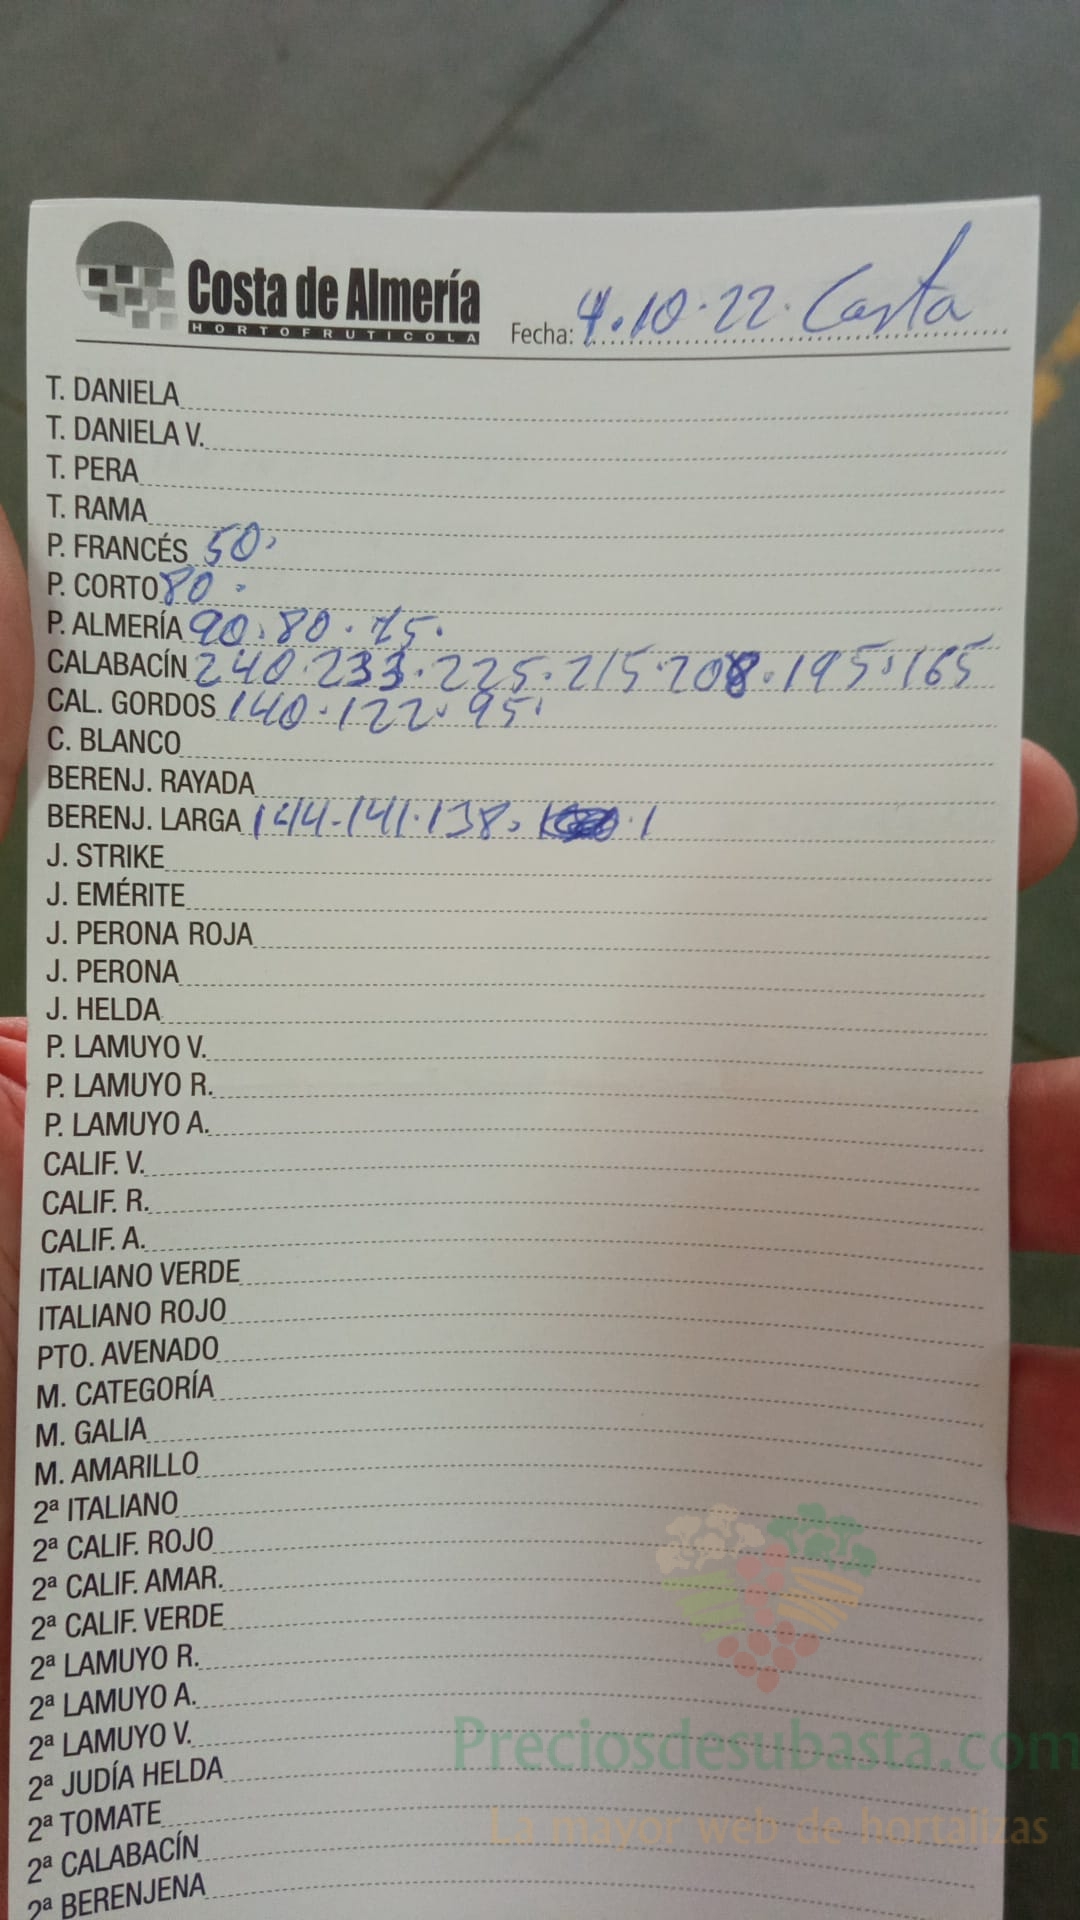 Costa de Almería
HORTOFRUTICOLA
Fecha: 4.10.22. Costa
T. DANIELA
T. DANIELA V.
T. PERA
T. RAMA
P. FRANCÉS 50.
P. CORTO 80.
P. ALMERÍA 90.80.75.
CALABACÍN 240.233.225.215.208.195.165
CAL. GORDOS 140.122.95.
C. BLANCO
BERENJ. RAYADA
BERENJ. LARGA 144-141.138.
J. STRIKE
J. EMÉRITE
J. PERONA ROJA
J. PERONA
J. HELDA
P. LAMUYO V.
P. LAMUYO R.
P. LAMUYO A.
CALIF. V.
CALIF. R.
CALIF. A.
ITALIANO VERDE
ITALIANO ROJO
PTO. AVENADO
M. CATEGORÍA
M. GALIA
M. AMARILLO
2ª ITALIANO
2ª CALIF. ROJO
2ª CALIF. AMAR.
2ª CALIF. VERDE
2ª LAMUYO R.
2ª LAMUYO A.
2ª LAMUYO V.
2ª JUDÍA HELDA
2ª TOMATE
2ª CALABACÍN
2ª BERENJENA
Preciosdesubasta.com
La mayor web de hortalizas